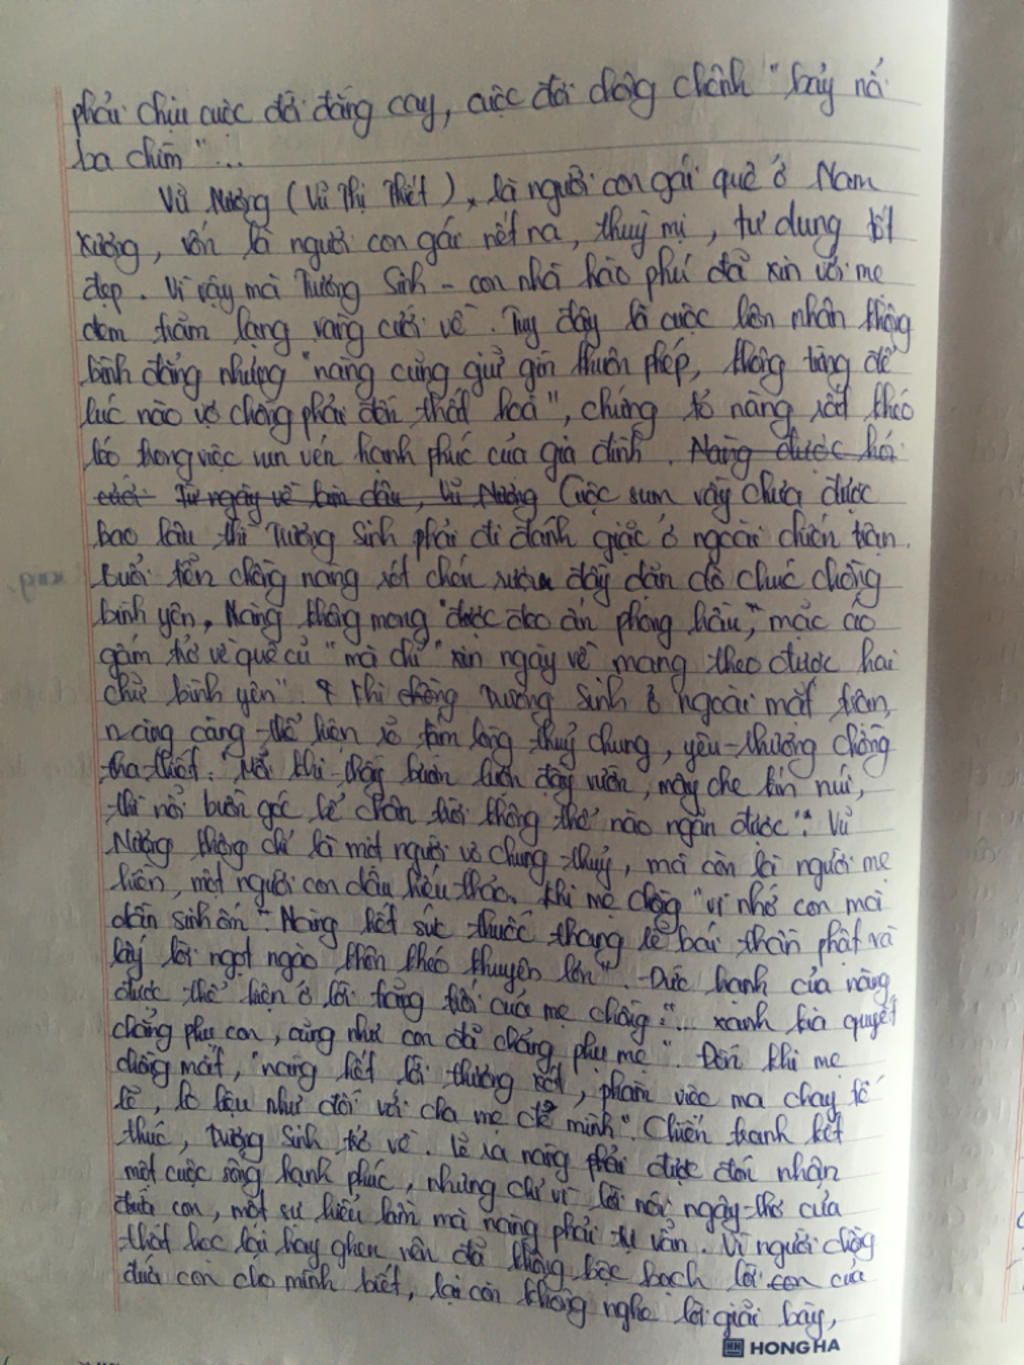 phải chịu cuộc đời đắng cay, cuộc đời chông chênh "bảy nổi
ba chìm"...
Vũ Nương (Vũ Thị Thiết), là người con gái quê ở Nam
Xương, vốn là người con gái nết na, thuỳ mị, tư dung tốt
đẹp. Vì vậy mà Trương Sinh - con nhà hào phú đã xin với mẹ
đem trăm lạng vàng cưới về. Tuy đây là cuộc hôn nhân không
bình đẳng nhưng "nàng cũng giữ gìn khuôn phép, không từng để
lúc nào vợ chồng phải đến thất hoà", chứng tỏ nàng rất khéo
léo trong việc vun vén hạnh phúc của gia đình. Nàng được hỏi
cưới Từ ngày về làm dâu, Vũ Nương Cuộc sum vầy chưa được
bao lâu thì Trương Sinh phải đi đánh giặc ở ngoài chiến trận.
Buổi tiễn chồng nàng rót chén rượu đầy dặn dò chúc chồng
bình yên, Nàng không mong "được đeo ấn phong hầu", mặc áo
gấm trở về quê cũ "mà chỉ "xin ngày về mang theo được hai
chữ bình yên". Khi chồng Trương Sinh ở ngoài mặt trận,
nàng càng thể hiện rõ tấm lòng thuỷ chung, yêu thương chồng
tha thiết. "Mỗi khi thấy bướm lượn đầy vườn, mây che kín núi,
thì nỗi buồn góc bể chân trời không thể nào ngăn được". Vũ
Nương không chỉ là một người vợ chung thuỷ, mà còn là người mẹ
hiền, một người con dâu hiếu thảo. Khi mẹ chồng "vì nhớ con mà
dần sinh ốm". Nàng hết sức thuốc thang lễ bái thần phật và
lấy lời ngọt ngào khôn khéo khuyên lơn". Đức hạnh của nàng
được thể hiện ở lời trăng trối của mẹ chồng: "... xanh kia quyết
chẳng phụ con, cũng như con đã chẳng phụ mẹ". Đến khi mẹ
chồng mất, "nàng hết lời thương xót, phàm việc ma chay tế
lễ, lo liệu như đối với cha mẹ đẻ mình". Chiến tranh kết
thúc, Trương Sinh trở về. Lẽ ra nàng phải được đón nhận
một cuộc sống hạnh phúc, nhưng chỉ vì lời nói ngây thơ của
đứa con, một sự hiểu lầm mà nàng phải tự vẫn. Vì người chồng
thất học lại hay ghen nên đã không bộc bạch lời con của
đứa con cho mình biết, lại còn không nghe lời giải bày,
HONG HA